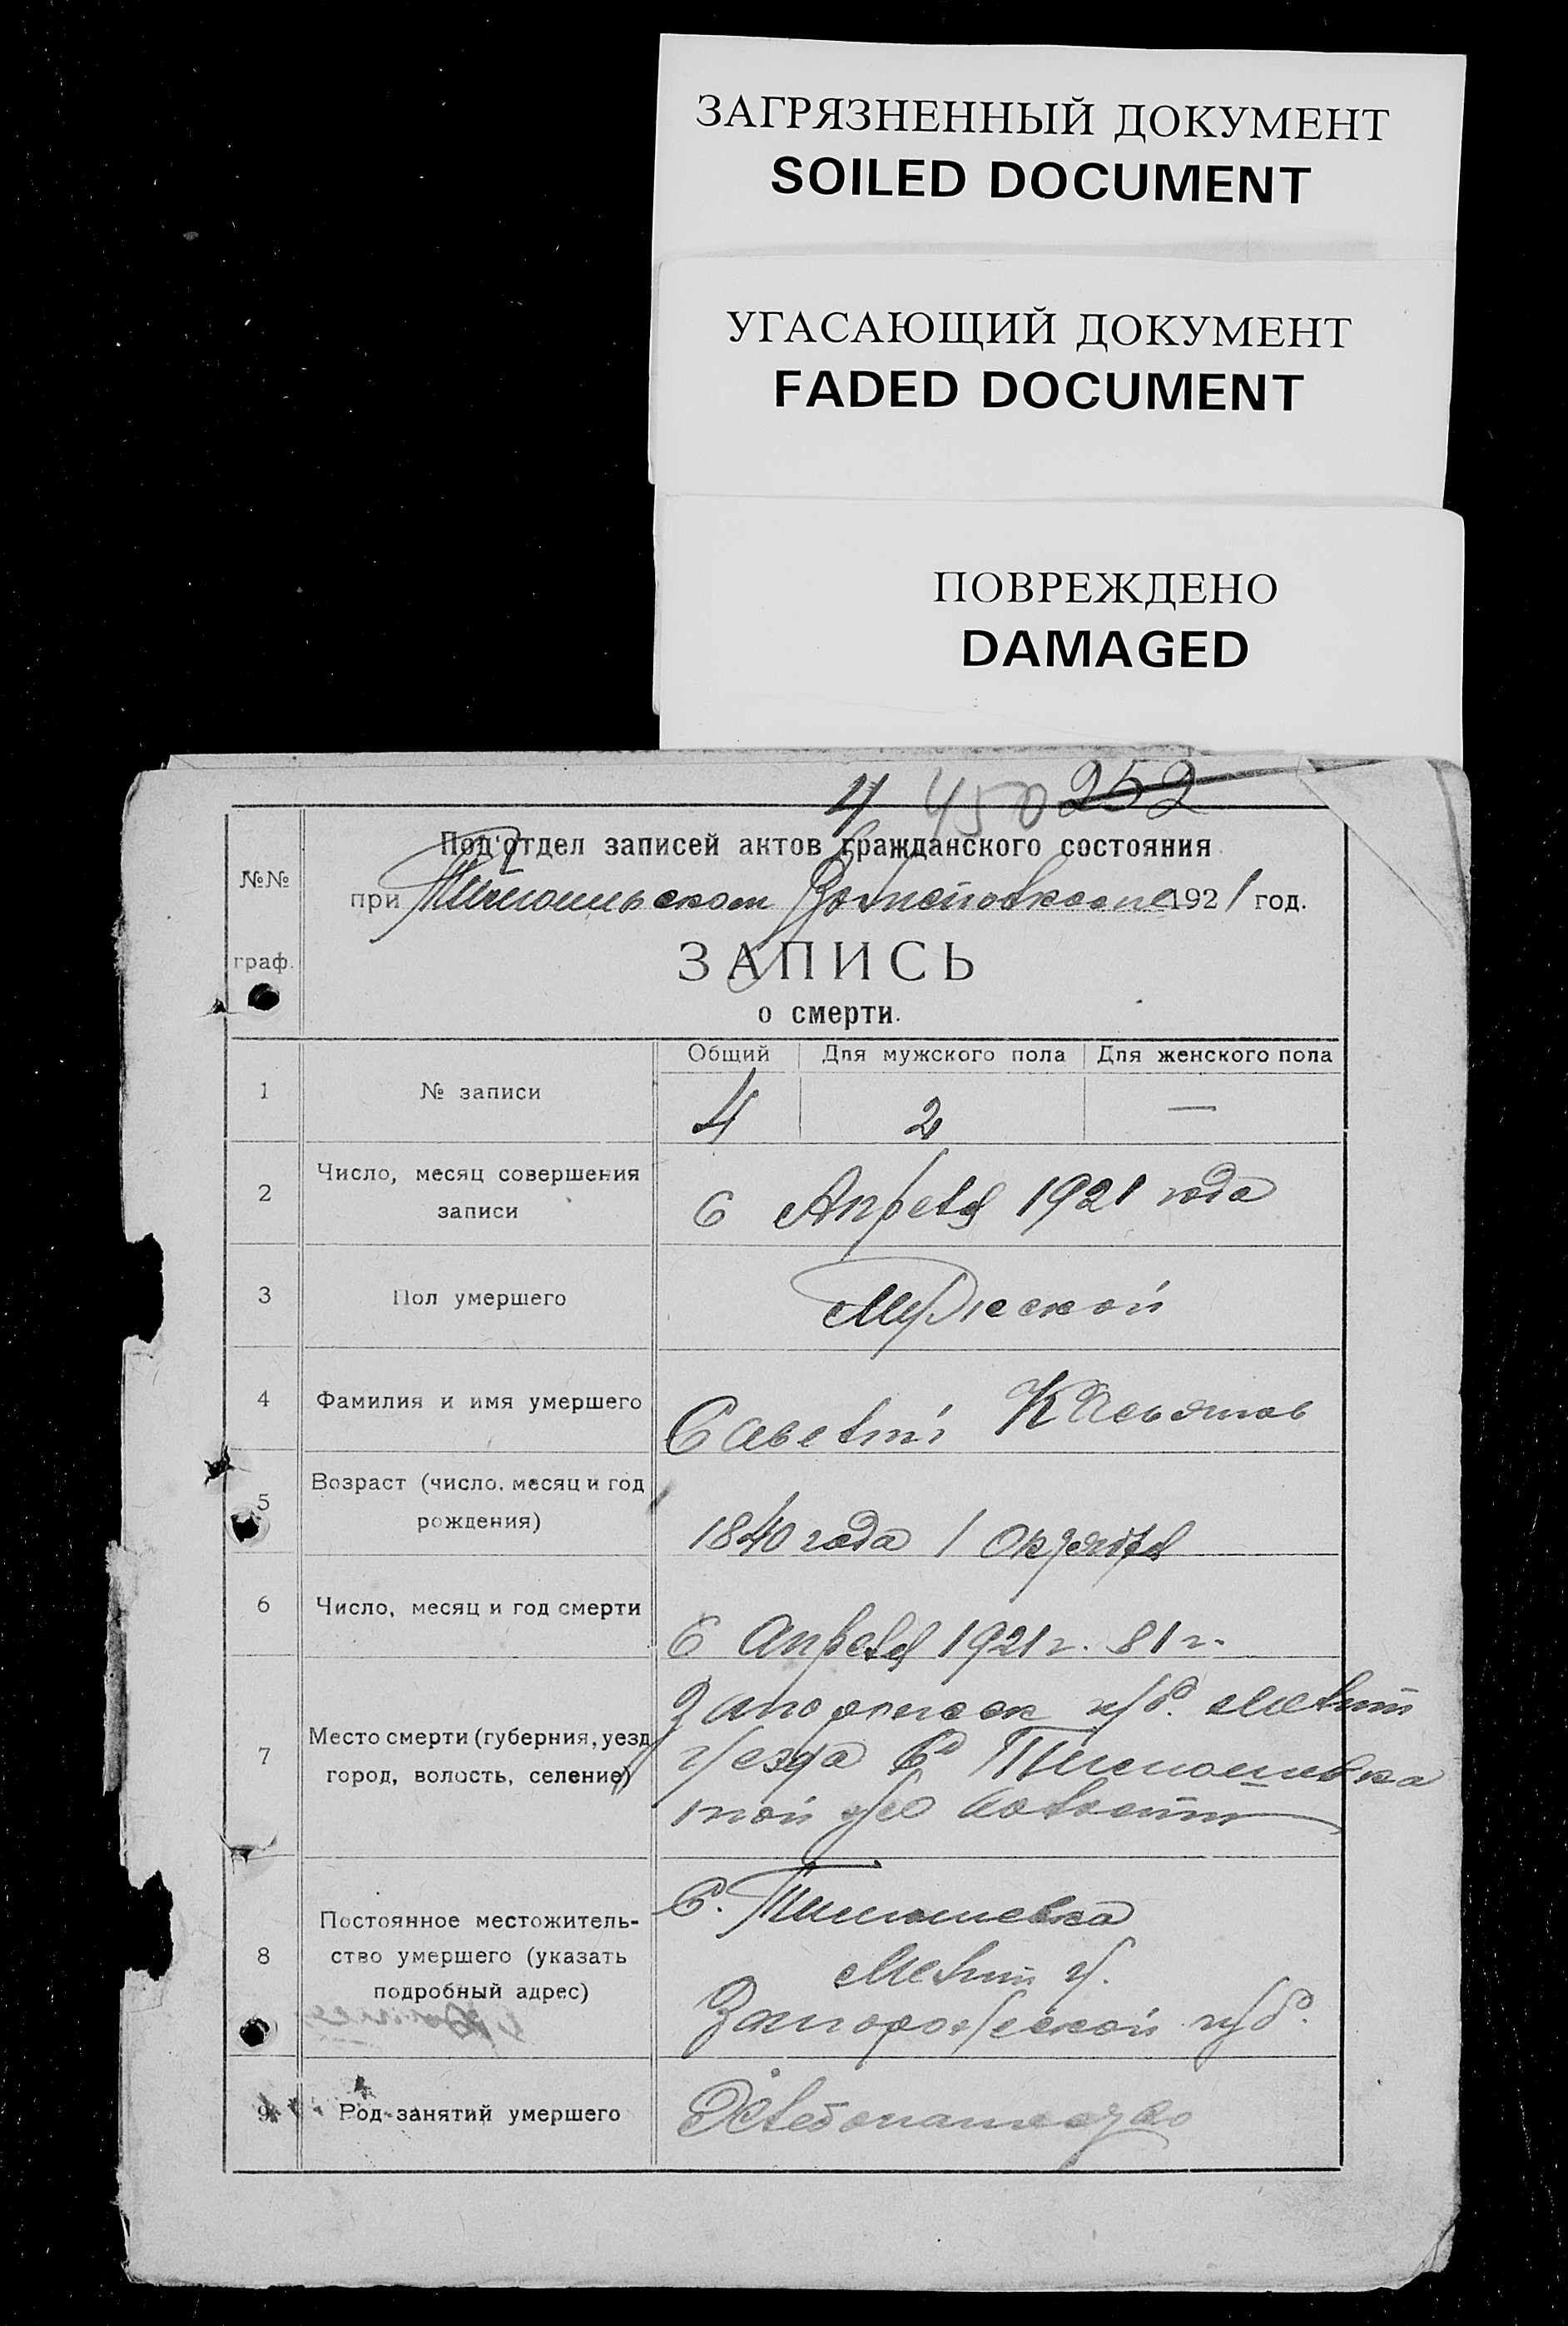 ЗАГРЯЗНЕННЫЙ ДОКУМЕНТ
SOILED DOCUMENT
УГАСАЮЩИЙ ДОКУМЕНТ
FADED DOCUMENT
ПОВРЕЖДЕНО
DAMAGED
4 450 252
Под'отдел записей актов гражданского состояния
№№
при 1921 год.
граф.
ЗАПИСЬ
о смерти.
Общий Для мужского пола Для женского пола
1 № записи 4 2 —
2 Число, месяц совершения
записи
6 Апреля 1921 года
3 Пол умершего Мужеской
4 Фамилия и имя умершего
5 Возраст (число, месяц и год
рождения)
1840 года 1 Октября
6 Число, месяц и год смерти
6 Апреля 1921 г. 81 г.
7 Место смерти (губерния, уезд,
город, волость, селение)
губ. Мелит
уезда С. Тимошевка
8 Постоянное местожитель-
ство умершего (указать
подробный адрес)
С. Тимошевка
Мелит у.
Запорожской губ.
9 Род занятий умершего Хлебопашество